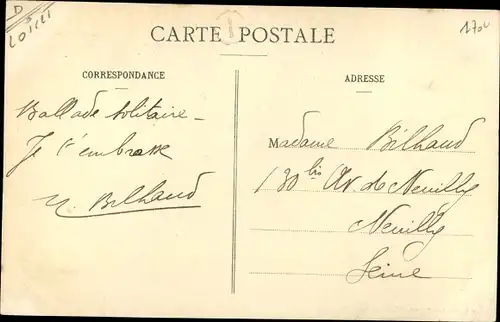 D
LOIRET
1700
CARTE POSTALE
CORRESPONDANCE
ADRESSE
Ballade solitaire -
Je t'embrasse
Bilhaud
Madame Bilhaud
130 bis Av. de Neuilly
Neuilly
Seine